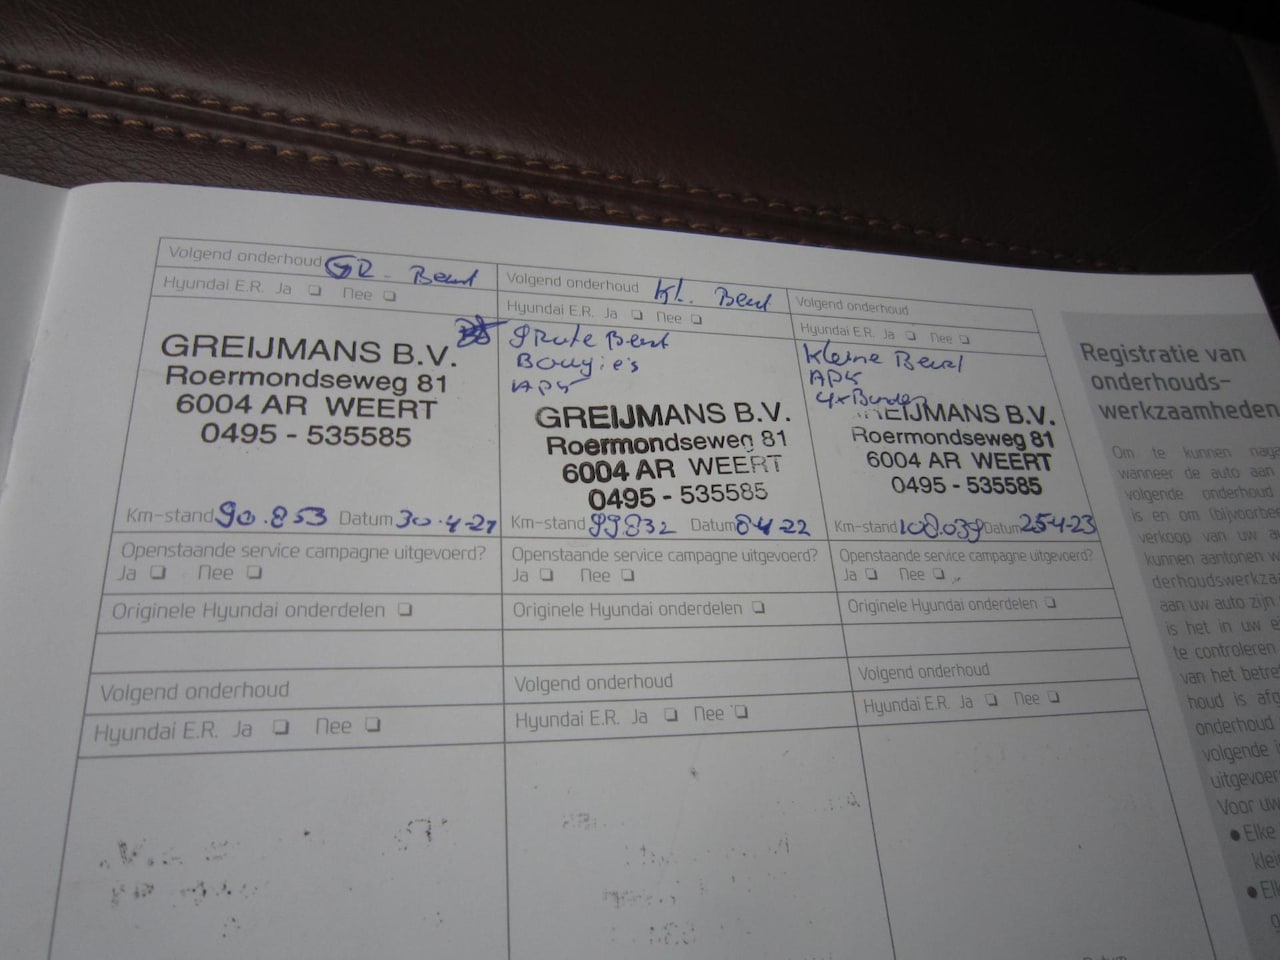 Volgend onderhoud GR. Beurt
Hyundai E.R. Ja ❏ Nee ❏
GREIJMANS B.V.
Roermondseweg 81
6004 AR WEERT
0495 - 535585
Km-stand 90.853 Datum 30-4-21
Openstaande service campagne uitgevoerd?
Ja ❏ Nee ❏
Originele Hyundai onderdelen ❏
Volgend onderhoud
Hyundai E.R. Ja ❏ Nee ❏
Volgend onderhoud Kl. Beurt
Hyundai E.R. Ja ❏ Nee ❏
grote Beurt
Bougie's
APK
GREIJMANS B.V.
Roermondseweg 81
6004 AR WEERT
0495 - 535585
Km-stand 99832 Datum 8-4-22
Openstaande service campagne uitgevoerd?
Ja ❏ Nee ❏
Originele Hyundai onderdelen ❏
Volgend onderhoud
Hyundai E.R. Ja ❏ Nee ❏
Volgend onderhoud
Hyundai E.R. Ja ❏ Nee ❏
Kleine Beurt
APK
4x Banden
GREIJMANS B.V.
Roermondseweg 81
6004 AR WEERT
0495 - 535585
Km-stand 108.039 Datum 25-4-23
Openstaande service campagne uitgevoerd?
Ja ❏ Nee ❏
Originele Hyundai onderdelen ❏
Volgend onderhoud
Hyundai E.R. Ja ❏ Nee ❏
Registratie van
onderhouds-
werkzaamheden
Om te kunnen naga
wanneer de auto aan
volgende onderhoud
is en om (bijvoorbe
verkoop van uw a
kunnen aantonen
derhoudswerkza
aan uw auto zijn
is het in uw e
te controleren
van het betre
houd is afg
onderhoud
volgende
uitgevoer
Voor uw
● Elke
klei
● El